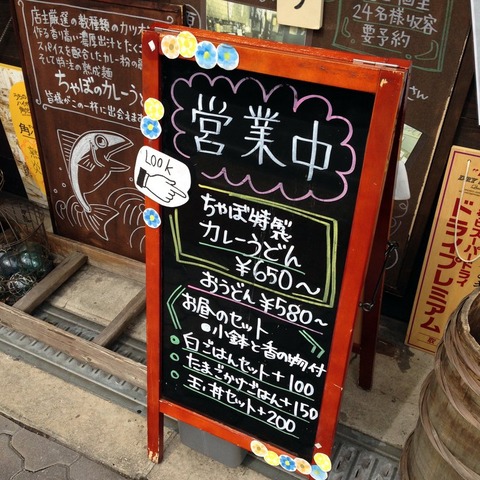 店主厳選の数種類のカツオ
作る香り高い濃厚出汁とたく
スパイスを配合したカレー粉の
そして特注の熟成麺
ちゃぼのカレーうど
皆様がこの一杯に出会えます
24名様収容
要予約
さん
営業中
LOOK
ちゃぼ特製
カレーうどん
¥650〜
おうどん ¥580〜
お昼のセット
●小鉢と香の物付
白ごはんセット+100
たまごかけごはん+150
玉丼セット+200
ドラフトプレミアム